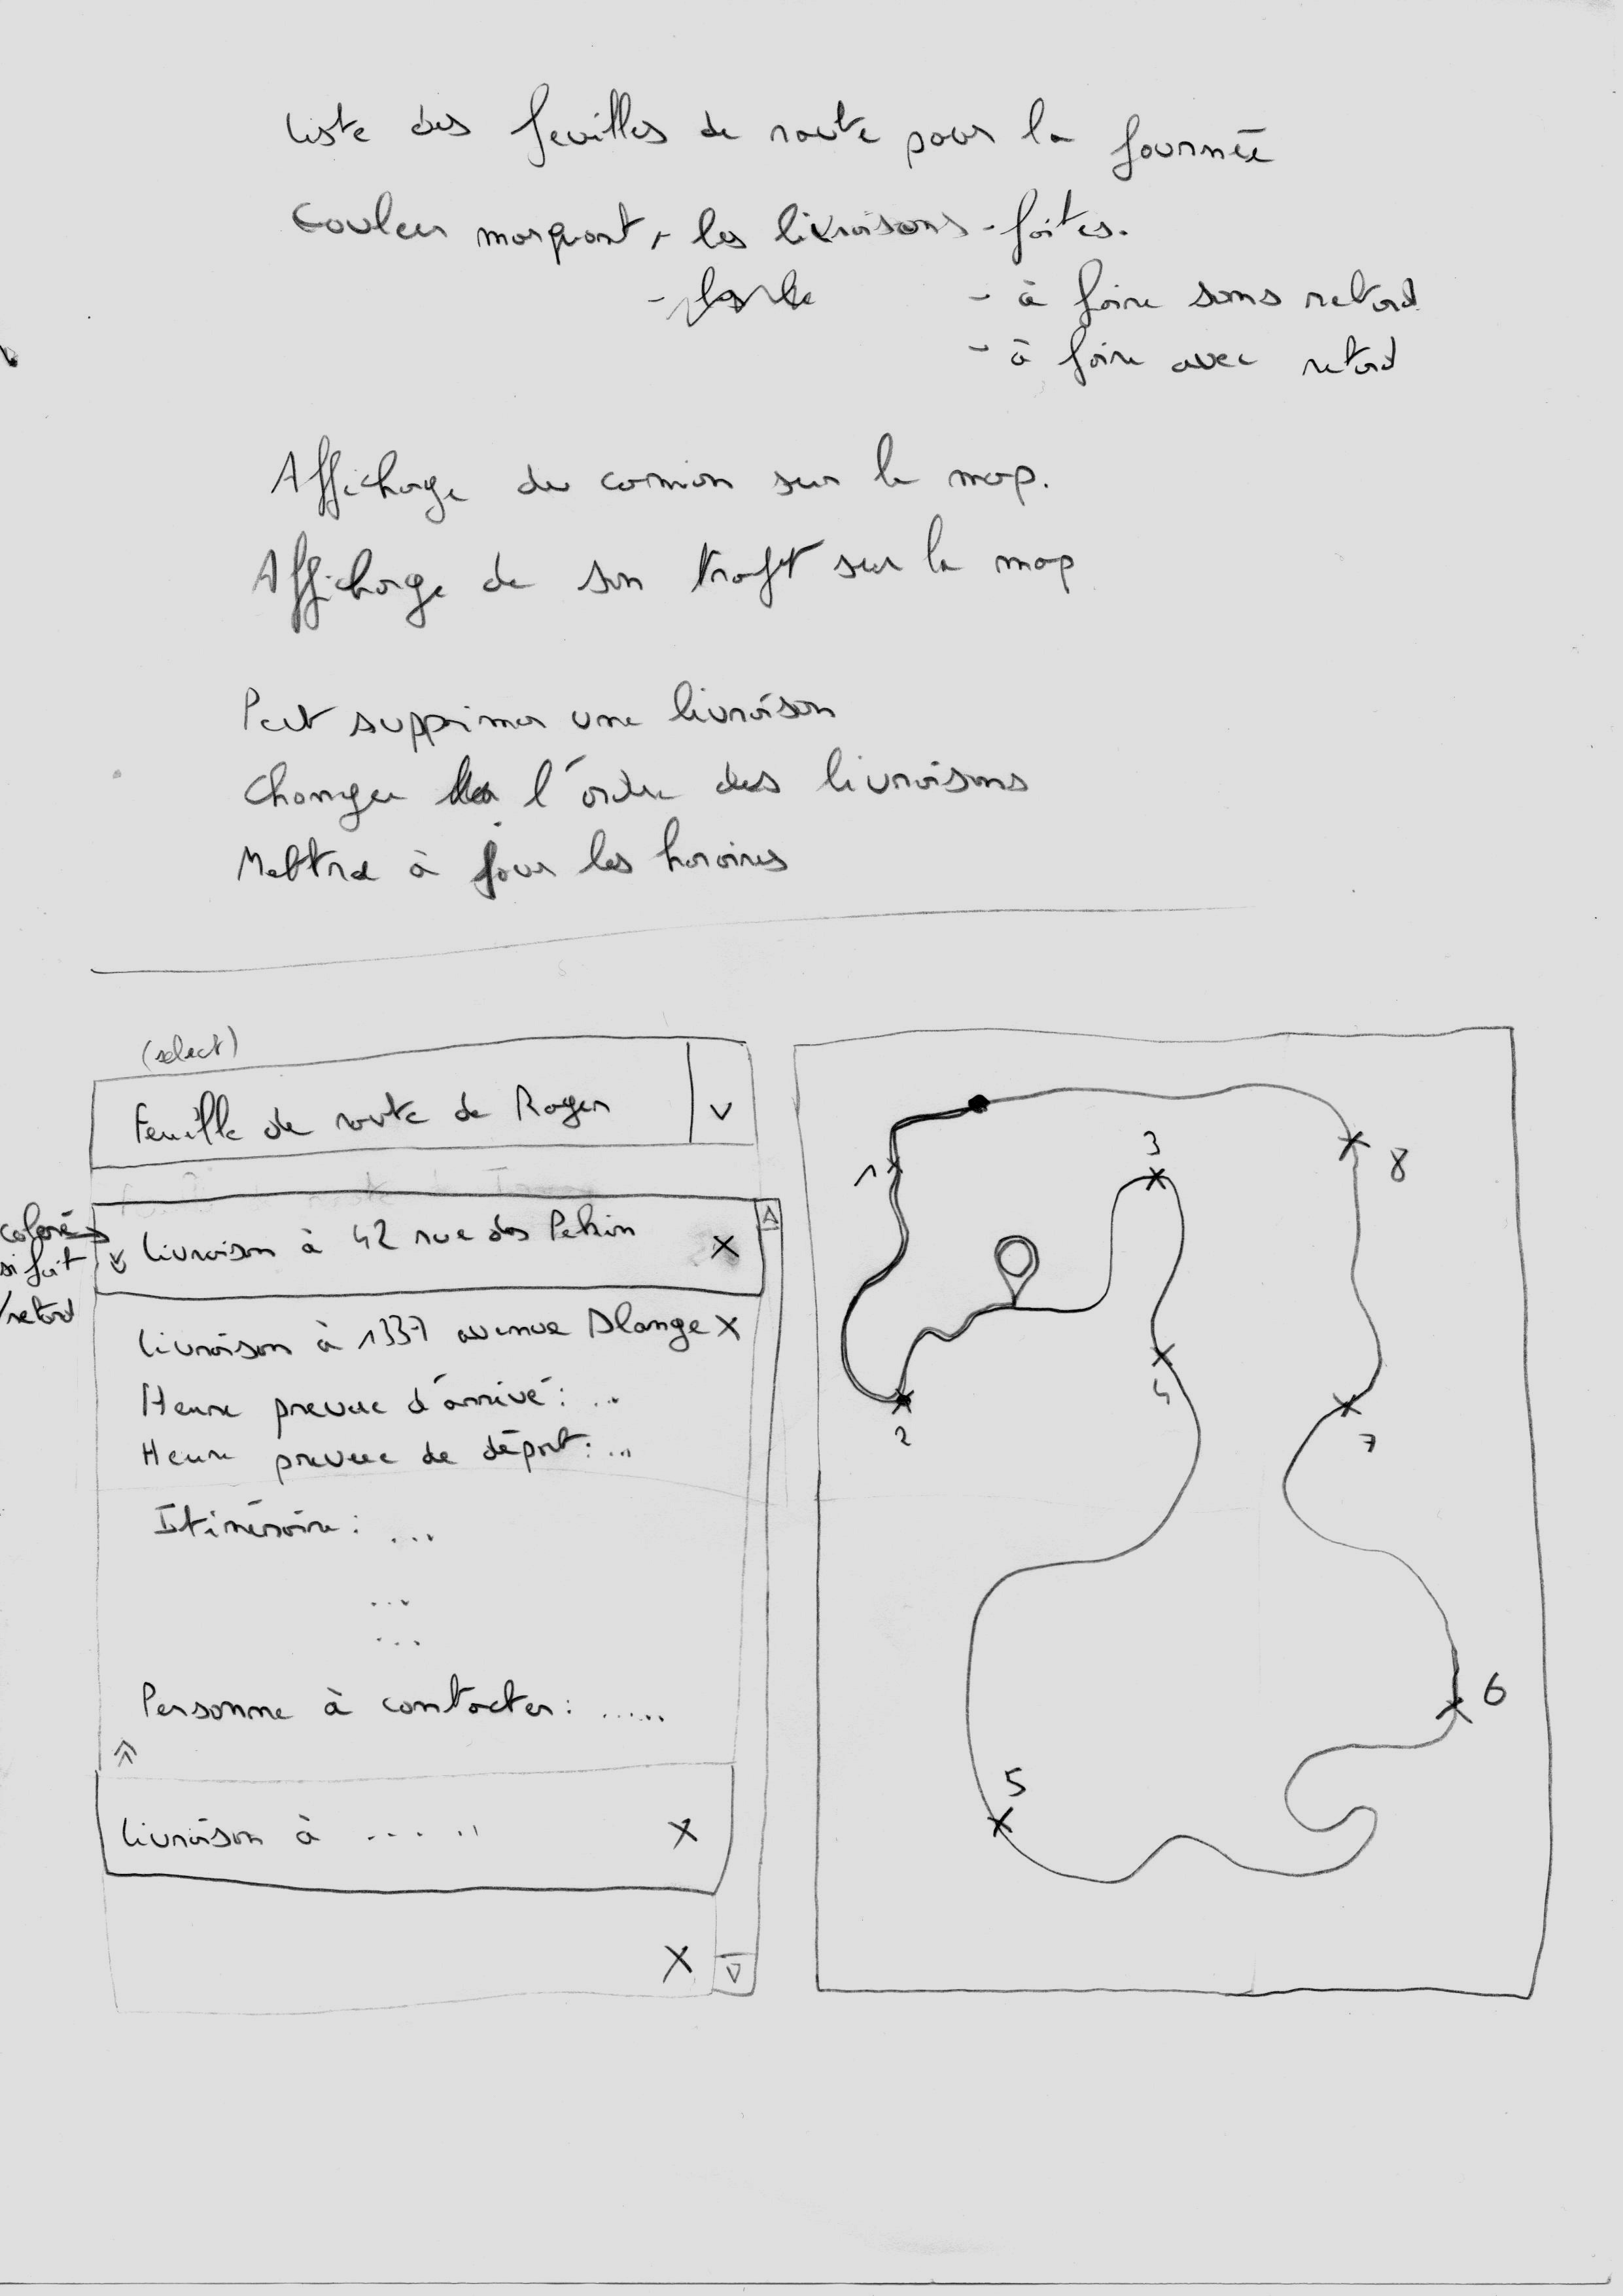 Liste des feuilles de route pour la journée
Couleur marquant les livraisons - faites.
- à faire sans retard
- à faire avec retard
Affichage du camion sur la map.
Affichage de son trajet sur la map
Peut supprimer une livraison
Changer l'ordre des livraisons
Mettre à jour les horaires
(select)
Feuille de route de Roger
v
coloré
si fait
/retard
Livraison à 42 rue des Pekin X
Livraison à 1337 avenue Blange X
Heure prevue d'arrivé : ...
Heure prevue de départ : ...
Itinéraire : ...
...
...
Personne à contacter : .....
Livraison à ...... X
X
1
2
3
4
5
6
7
8